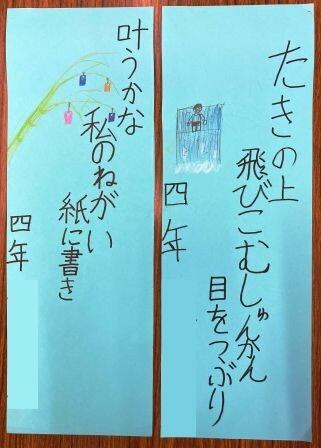 たきの上
飛びこむしゅんかん
目をつぶり
四年
叶うかな
私のねがい
紙に書き
四年